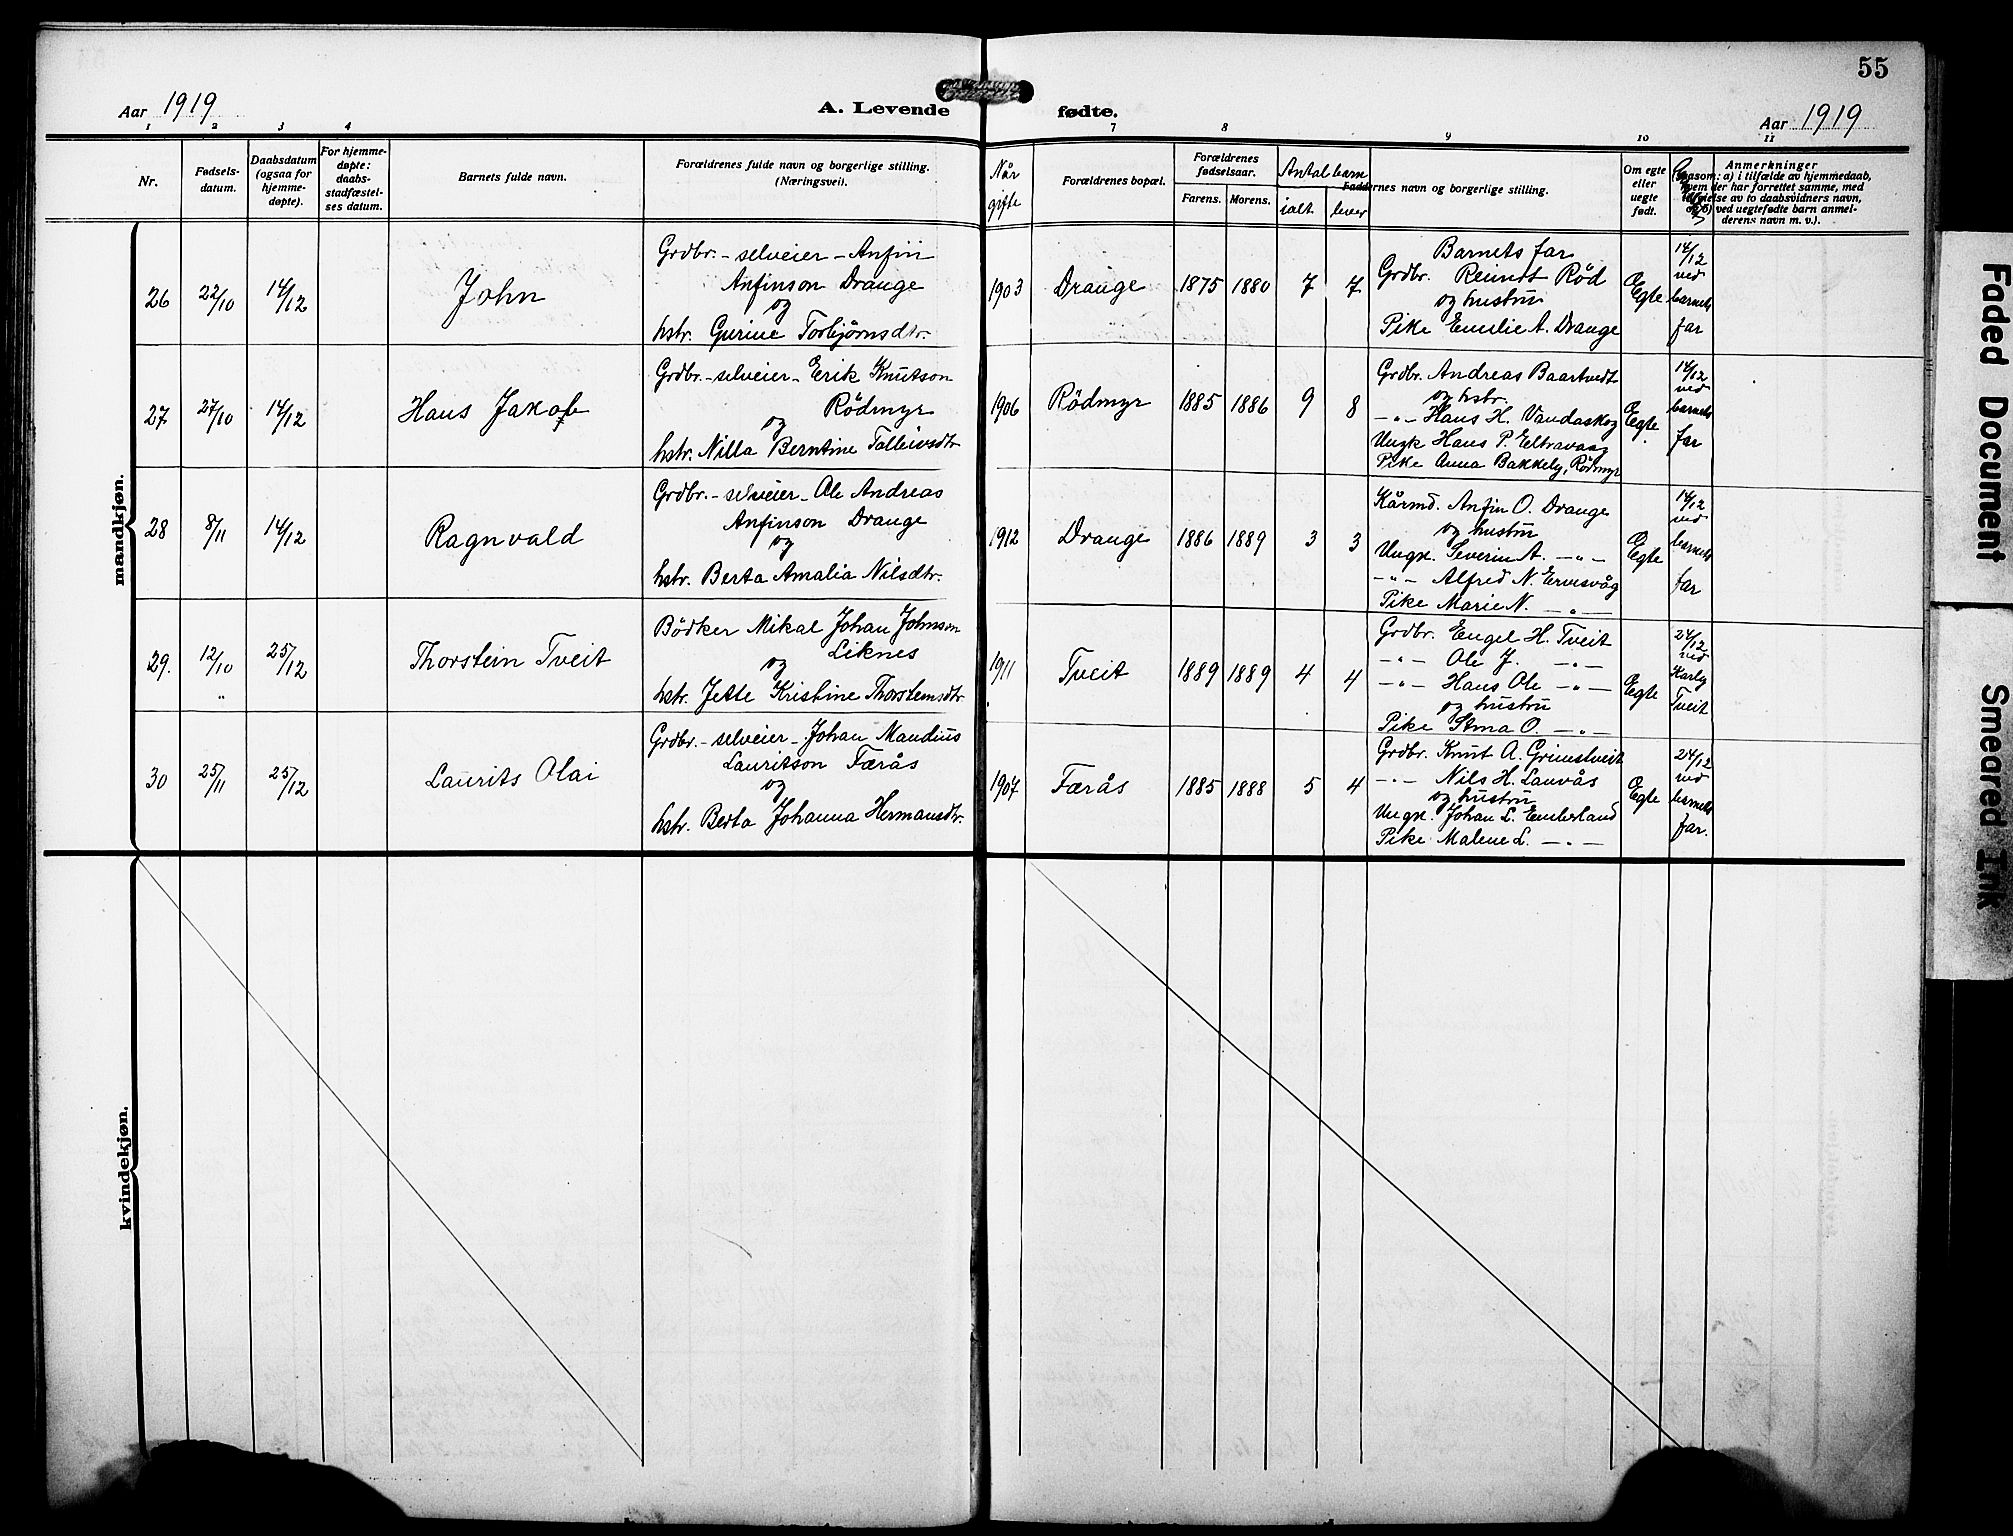 55
Aar 1919
A. Levende fødte.
Aar 1919
1 2 3 4 7 8 9 10 11
Nr.
Fødsels-
datum.
Daabsdatum
(ogsaa for
hjemme-
døpte).
For hjemme-
døpte:
daabs-
stadfæstel-
ses datum.
Barnets fulde navn.
Forældrenes fulde navn og borgerlige stilling.
(Næringsvei).
Når
gifte
Forældrenes bopæl.
Forældrenes
fødselsaar.
Farens. Morens.
Antal barn
ialt lever
Faddernes navn og borgerlige stilling.
Om egte
eller
uegte
født.
Anmerkninger
(saasom: a) i tilfælde av hjemmedaab,
hvem der har forrettet samme, med
tilføielse av to daabsvidners navn,
og b) ved uegtefødte barn anmel-
derens navn m. v.).
mandkjøn.
26 22/10 14/12 John
Grdbr. - selveier - Anfin
Anfinson Drange
og
hstr. Gurine Torbjørnsdtr.
1903 Drange 1875 1880 7 7
Barnets far
Grdbr. Reinert Rød
og hustru
Pike Emilie A. Drange
Egte
14/12
ved
barnets
far
27 27/10 14/12 Hans Jakob
Grdbr. - selveier - Erik Knutson
Rödmyr
og
hstr. Nilla Berntine Tolleivsdtr
1906 Rödmyr 1885 1886 9 8
Grdbr. Andreas Baartvedt
og hstr.
-"- Hans H. Vandaskog
Ungk Hans P. Eltravaag
Pike Anna Bakkely, Rödmyr
Egte
14/12
ved
barnets
far
28 8/11 14/12 Ragnvald
Grdbr. - selveier - Ole Andreas
Anfinson Drange
og
hstr. Berta Amalia Nilsdtr.
1912 Drange 1886 1889 3 3
Kårmd. Anfin O. Drange
og hustru
Ungk. Severin A. -"-
-"- Alfred N. Ervesvåg
Pike Marie N. -"-
Egte
14/12
ved
barnets
far
29. 12/10 25/12 Thorstein Tveit
"
Bödker Mikal Johan Johnson
Liknes
og
hstr. Jette Kristine Thorsteinsdtr
1911 Tveit 1889 1889 4 4
Grdbr. Engel H. Tveit
-"- Ole J. -"-
-"- Hans Ole -"-
og hustru
Pike Stina O. -"-
Egte
24/12
ved
Karly
Tveit
30 25/11 25/12 Laurits Olai
Grdbr. - selveier - Johan Mandius
Lauritson Færås
og
hstr. Berta Johanna Hermansdtr.
1907 Færås 1885 1888 5 4
Grdbr. Knut A. Grimstveit
-"- Nils H. Lauvås
og hustru
Ungk. Johan L. Emberland
Pike Malene L. -"-
Egte
24/12
ved
barnets
far.
kvindekjøn.
Faded Document
Smeared Ink